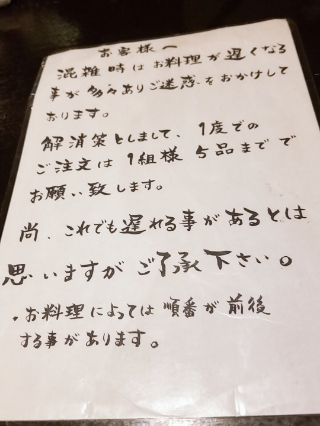 お客様へ
混雑時はお料理が遅くなる
事が多々ありご迷惑をおかけして
おります。
解消策としまして、1度での
ご注文は1組様5品までで
お願い致します。
尚、これでも遅れる事があるとは
思いますがご了承下さい。
・お料理によっては順番が前後
する事があります。